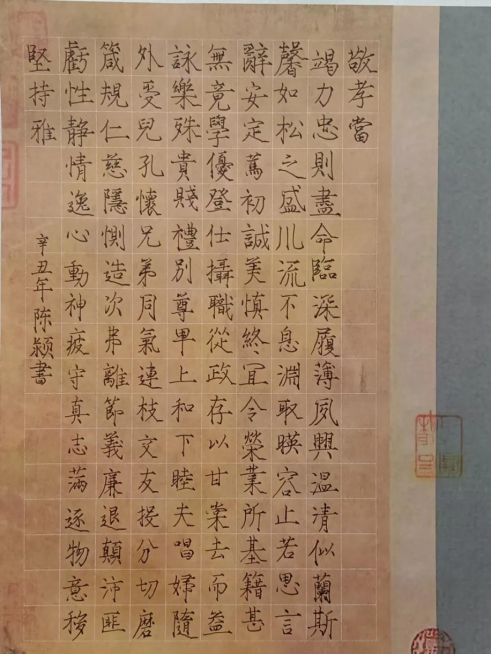 敬孝當
竭力忠則盡命臨深履薄夙興温清似蘭斯
馨如松之盛川流不息淵取暎容止若思言
辭安定篤初誠美慎終宜令榮業所基籍甚
無竟學優登仕攝職從政存以甘棠去而益
詠樂殊貴賤禮別尊卑上和下睦夫唱婦隨
外受兒孔懷兄弟同氣連枝交友投分切磨
箴規仁慈隱惻造次弗離節義廉退顛沛匪
虧性静情逸心動神疲守真志滿逐物意移
堅持雅
辛丑年陈颖書